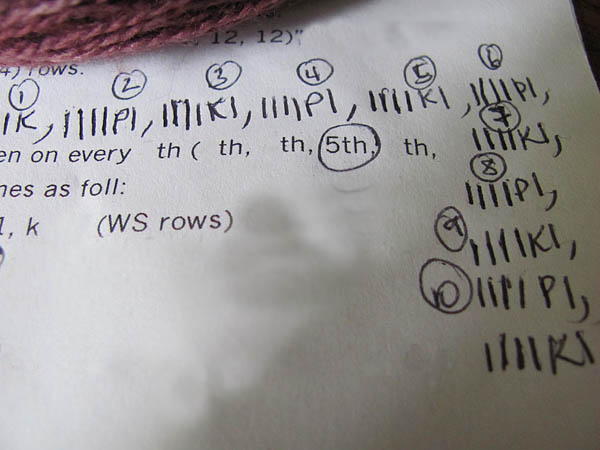 , 12, 12)"
4) rows.
1 2 3 4 5 6
IK, IIIIP1, IIIIK1, IIIIP1, IIIIK1, IIIIP1,
7
en on every th ( th, th, 5th, th,
IIIIK1,
8
nes as foll:
IIIIP1,
1, k (WS rows)
9 IIIIK1,
10 IIIIP1,
IIIIK1